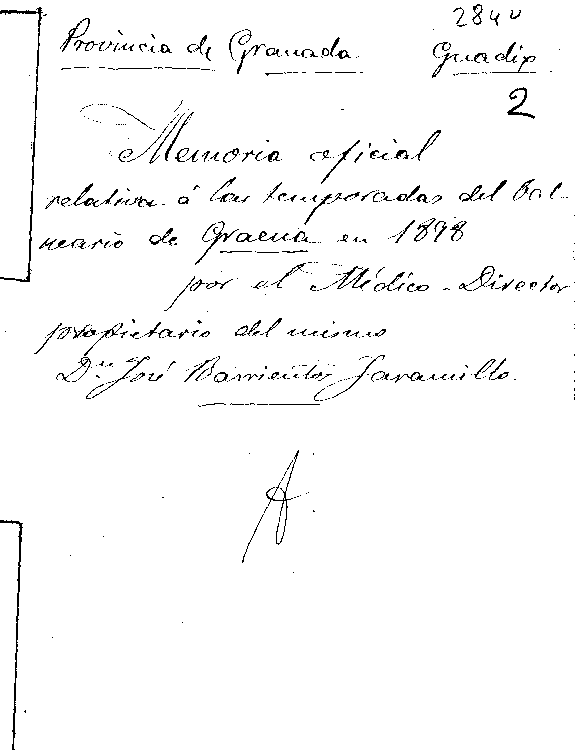 2840
Provincia de Granada Guadix
2
Memoria oficial
relativa á las temporadas del bal-
neario de Graena en 1898
por el Médico-Director
propietario del mismo
Dn José Barrientos Jaramillo.
A.